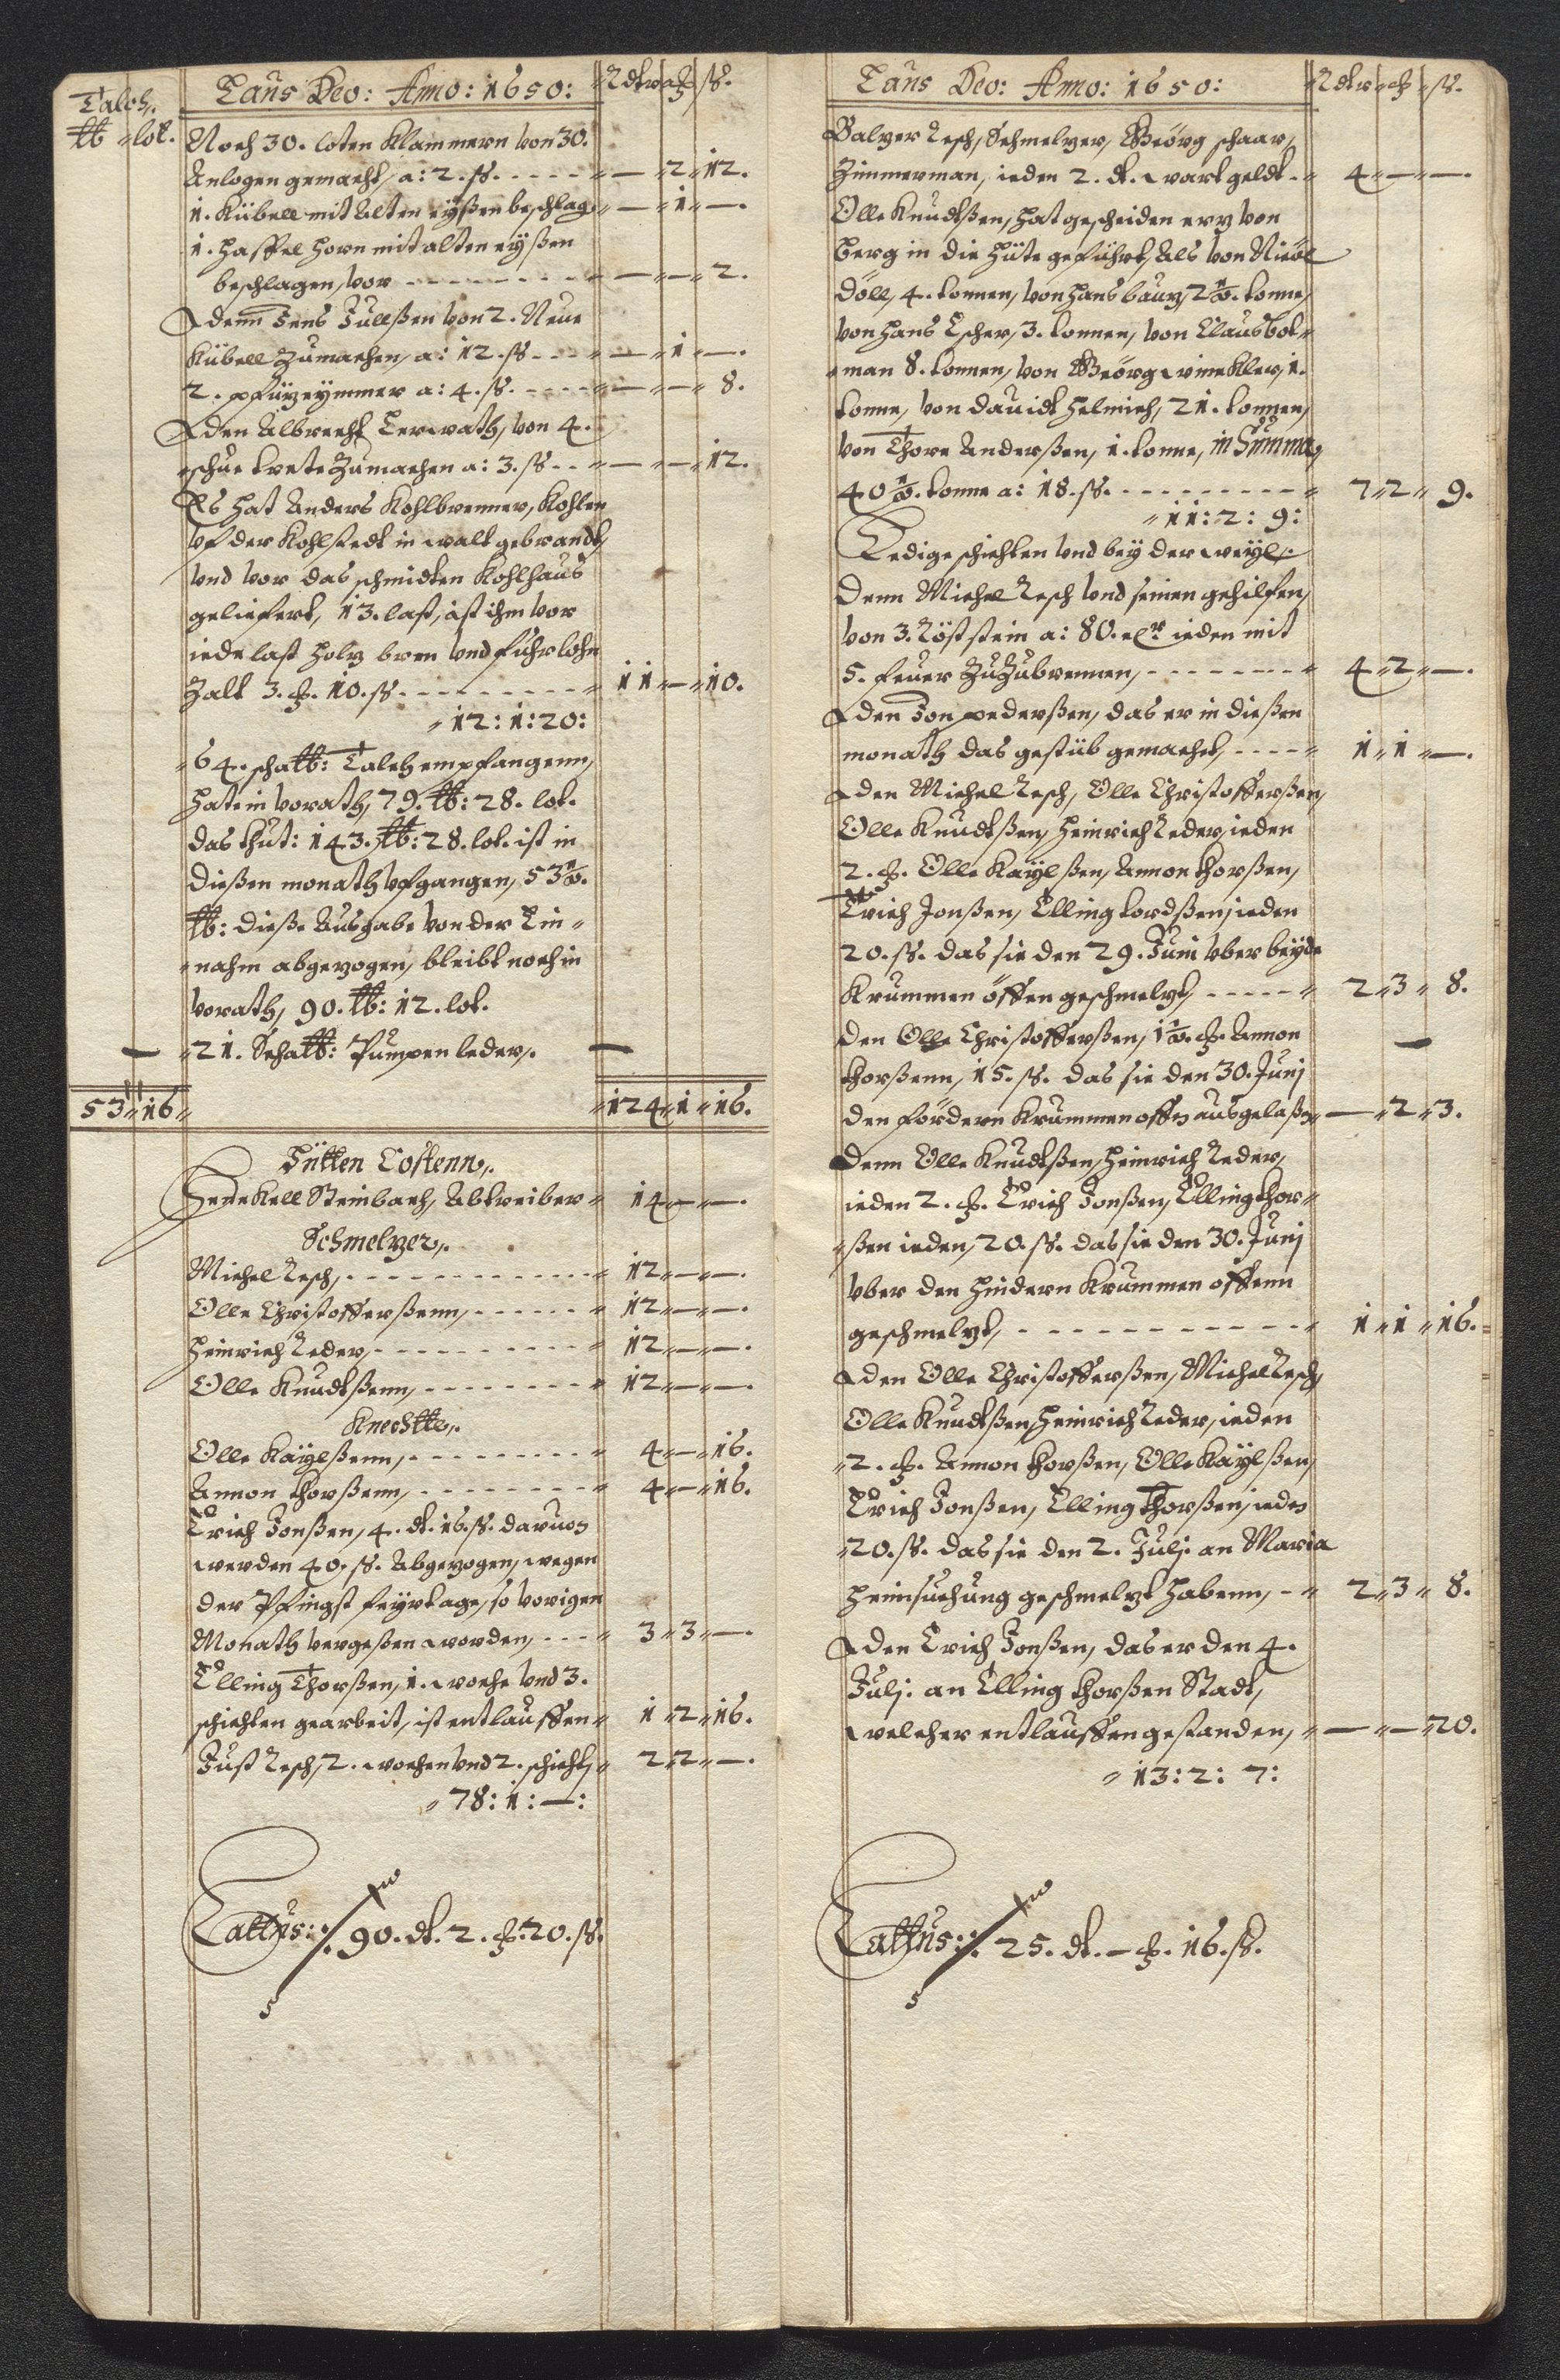 Laus Deo: Anno: 1650: Rdlr ß.
Talch,
℔ lot.
Noch 30. loten Klammern von 30.
Anlogen gemacht, a: 2. ß. — 2 12.
1. Kübell mit Alten eyßen beschlag — 1 —.
1. Haffel Horn mit alten eyßen
beschlagen, vor — — 2.
denn Jens Jullßen von 2. Neue
Kübell Zumachen, a: 12. ß — 1 —.
2. pfüzeymmer a: 4. ß. — — 8.
den Albrecht Lerwath, von 4.
schue trete Zumachen a: 3. ß — — 12.
Es hat Anders Kohlbrenner, Kohlen
vf der Kohlstedt in walt gebrandt,
vnd vor das schmidten Kohlhaus
geliefert, 13. last, ist ihm vor
iede last holz bren vnd fuhrlohn
Zalt 3. 10. ß. 11 — 10.
12: 1: 20:
64. scha℔: Talch empfangenn,
hate in vorath, 79. ℔: 28. lot.
das thut: 143. ℔: 28. lot. ist in
dießen monath vfgangen, 53 ½.
℔: dieße Ausgabe von der Ein-
nahm abgezogen, bleibt noch in
vorath, 90. ℔: 12. lot.
— 21. Scha℔: Pumpen leder, —
53 16 124 1 16.
Hütten Costenn,
Hene Kell Steinbach, Abtreiber 14 — —.
Schmelzer,
Michel Resch, 12 — —.
Olle Christofferßenn, 12 — —.
Heinrich Reder, 12 — —.
Olle Knudtßenn, 12 — —.
Knechtte,
Olle Kaÿlßenn, 4 — 16.
Amon thorßenn, 4 — 16.
Erich Jonßen, 4. dl. 16. ß. davon
werden 40. ß. Abgezogen, wegen
der Pfingst feyrtage, so vorigen
Monath vergeßen worden, 3 3 —.
Elling Thorßen, 1. woche vnd 3.
schichten gearbeit, ist entlauffen 1 2 16.
Just Resch, 2. wochen vnd 2. schicht, 2 2 —.
78: 1: —:
Lattus: 90. dl. 2. 20. ß.
Laus Deo: Anno: 1650: Rdlr ß.
Balzer Resch, Schmelzer, Georg schaar,
Zimmerman, ieden 2. dl. wart geldt 4 — —.
Olle Knudtßen, hat gescheiden erz von
berg in die Hüte geführt, Als von Nicol
döll, 4. tonnen, von Hans bauz, 2 ½. tonne,
von Hans Escher, 3. tonnen, von Claus bot-
man 8. tonnen, von Georg wincKler, 1.
tonne, von dauidt Helmich, 21. tonnen,
von Thore Anderßen, 1. tonne, in Summa,
40 ½. tonne a: 18. ß. 7 2 9.
11: 2: 9:
Ledige schichten vnd bey der weyl,
denn Michel Resch vnd seinen gehilfen,
von 3. Röststein a: 80. ieden mit
5. feuer Zu Zubrennen, 4 2 —.
den Jon pederßen, das er in dießen
monath das gestüb gemachet, 1 1 —.
den Michel Resch, Olle Christofferßen,
Olle Knudtßen, Heinrich Reder, ieden
2. Olle Kaÿlßen, Amon thorßen,
Erich Jonßen, Elling tordßen, ieden
20. ß. das sie den 29. Juni vber beyde
Krummen öffen geschmelzt, 2 3 8.
den Olle Christofferßen, 1 ½. Amon —
thorßenn, 15. ß. das sie den 30. Junj
den fördern Krummen offn ausgelaßn — 2 3.
denn Olle Knudtßen, Heinrich Reder,
ieden 2. Erich Jonßen, Elling thor-
ßen ieden, 20. ß. das sie den 30. Junj
vber den hindern Krummen offenn
geschmelzt, 1 1 16.
den Olle Christofferßen, Michel Resch,
Olle Knudtßen, Heinrich Reder, ieden
2. Amon thorßen, Olle Kaÿlßen,
Erich Jonßen, Elling Thorßen, iedn
20. ß. das sie den 2. Julj. an Maria
heimsuchung geschmelzt habenn, 2 3 8.
den Erich Jonßen, das er den 4.
Julj. an Elling thorßen Stadt,
welcher entlauffen gestanden, — — 20.
13: 2: 7:
Lattus: 25. dl. — 16. ß.